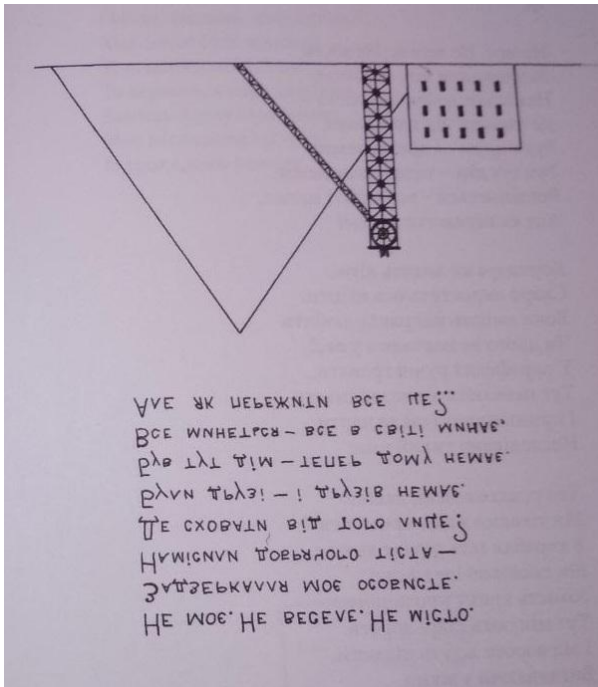 Не моє. Не веселе. Не місто.
Задзеркалля моє особисте.
Намісили добрячого тіста –
Де сховати від того лице?
Були друзі – і друзів немає.
Був тут дім – тепер дому немає.
Все минеться – все в світі минає,
Але як пережити все це?..